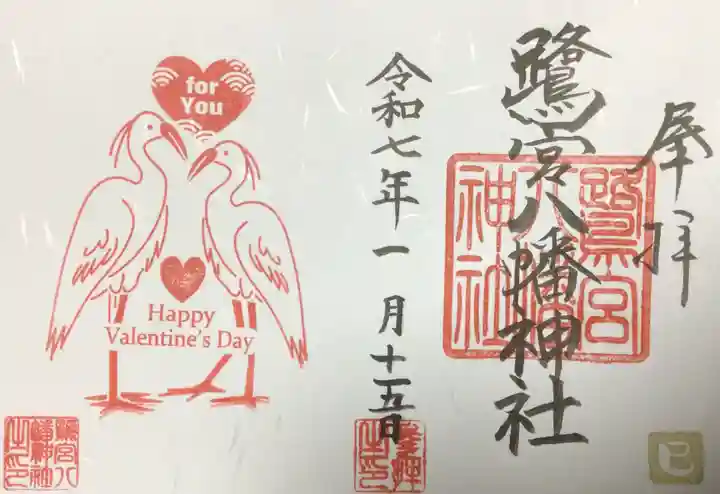 奉拝
鷺宮八幡神社
鷺宮八幡神社
令和七年一月十五日
巳
for
You
Happy
Valentine's Day
鷺宮八幡神社之印